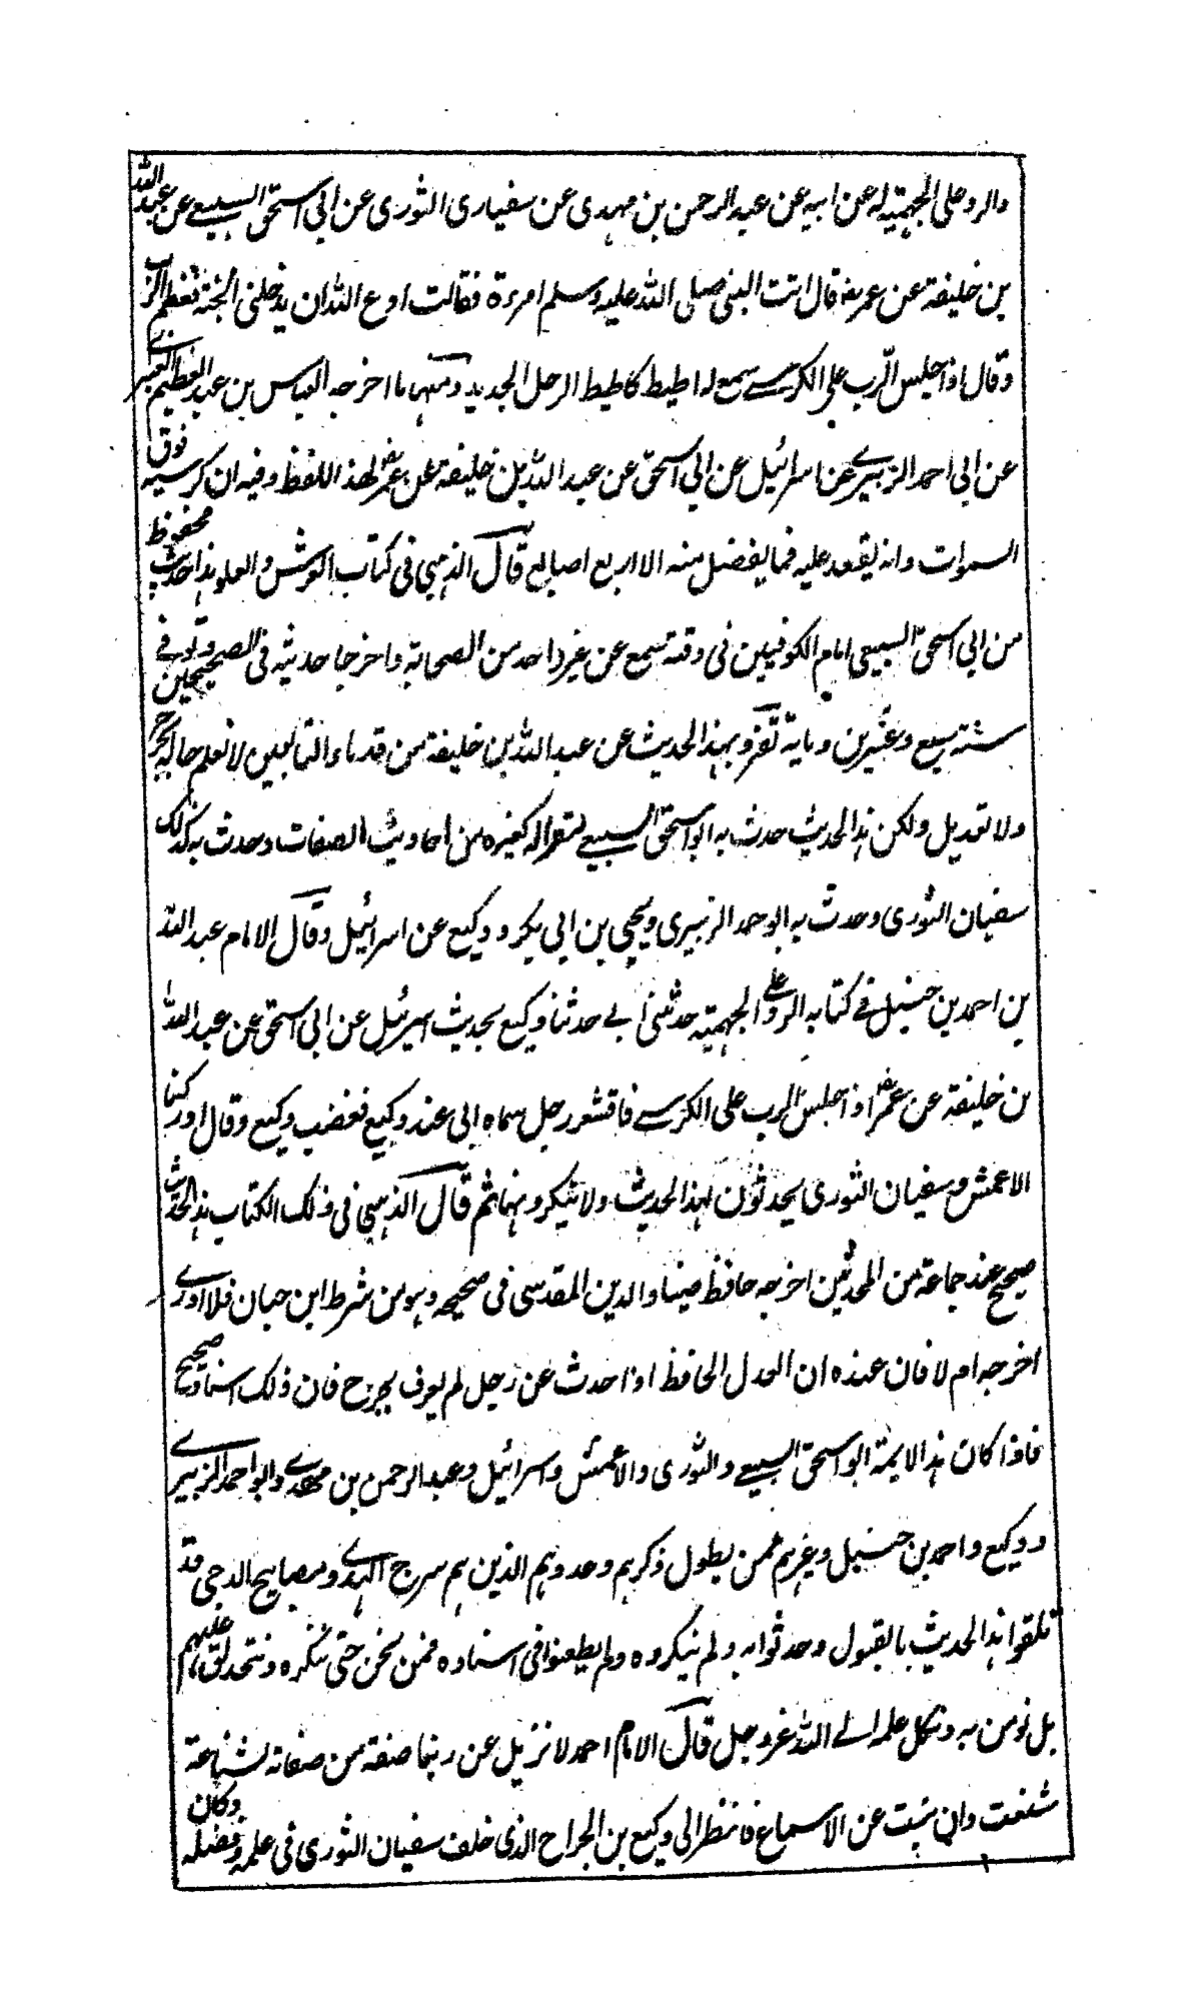 والرد على الجهمية له عن ابيه عن عبد الرحمن بن مهدى عن سفيان الثورى عن ابى اسحق السبيعے عن عبد الله
بن خليفة عن عمر رض قال اتت النبى صلى الله عليه وسلم امرءة فقالت ادع الله ان يدخلنى الجنة فعظم الرب
وقال اذا جلس الرب على الكرسے سمع له اطيط كاطيط الرحل الجديد ومنها ما اخرجه العباس بن عبد العظيم العنبرے
عن ابى احمد الزبيرے عن اسرائيل عن ابى اسحق عن عبد الله بن خليفة عن عمر رض بهذا اللفظ وفيه ان كرسيه فوق
السموات وانه يقعد عليه فما يفضل منه الا اربع اصابع قال الذهبى فى كتاب العرش والعلو هذا حديث محفوظ
من ابى اسحق السبيعى امام الكوفيين فى وقته سمع عن غير واحد من الصحابة واخرجا حديثه فى الصحيحين وتوفے
سنة سبع وعشرين وماية تفرد بهذا الحديث عن عبد الله بن خليفة من قدماء التابعين لا نعلم حاله بجرح
ولا تعديل ولكن هذا الحديث حدث به ابو اسحق السبيعے مقرا له كغيره من احاديث الصفات وحدث به كذلك
سفيان الثورى وحدث به ابو احمد الزبيرى ويحيى بن ابى بكر ووكيع عن اسرائيل وقال الامام عبد الله
بن احمد بن حنبل فے كتابه الرد على الجهمية حدثنى ابے حدثنا وكيع بحديث اسرئيل عن ابى اسحق عن عبد الله
بن خليفة عن عمر رض اذا جلس الرب على الكرسے فاقشعر رجل سماه ابى عند وكيع فغضب وكيع وقال ادركنا
الاعمش وسفيان الثورى يحدثون بهذا الحديث ولا ينكرونها ثم قال الذهبى فى ذلك الكتاب هذا الحديث
صحيح عند جماعة من المحدثين اخرجه حافظ ضياء الدين المقدسى فى صحيحه وهو من شرط ابن حبان فلا ادرے
اخرجه ام لا فان عنده ان العدل الحافظ اذا حدث عن رجل لم يعرف بجرح فان ذلك اسناد صحيح
فاذا كان هذا الايمة ابو اسحق السبيعے والثورى والاعمش واسرائيل وعبد الرحمن بن مهدے وابو احمد الزبيرے
ووكيع واحمد بن حنبل وغيرهم ممن يطول ذكرهم وعددهم الذين هم سرج الهدے ومصابيح الدجى قد
تلقوا هذا الحديث بالقبول وحدثوا به ولم ينكروه ولم يطعنوا فى اسناده فمن نحن حتى ننكره ونتحذلق عليهم
بل نومن به ونكل علمه الے الله عز وجل قال الامام احمد لا نزيل عن ربنا صفة من صفاته لشناعة
شنعت وان نبت عن الاسماع فانظر الى وكيع بن الجراح الذى خلف سفيان الثورى فى علمه وفضله وكان